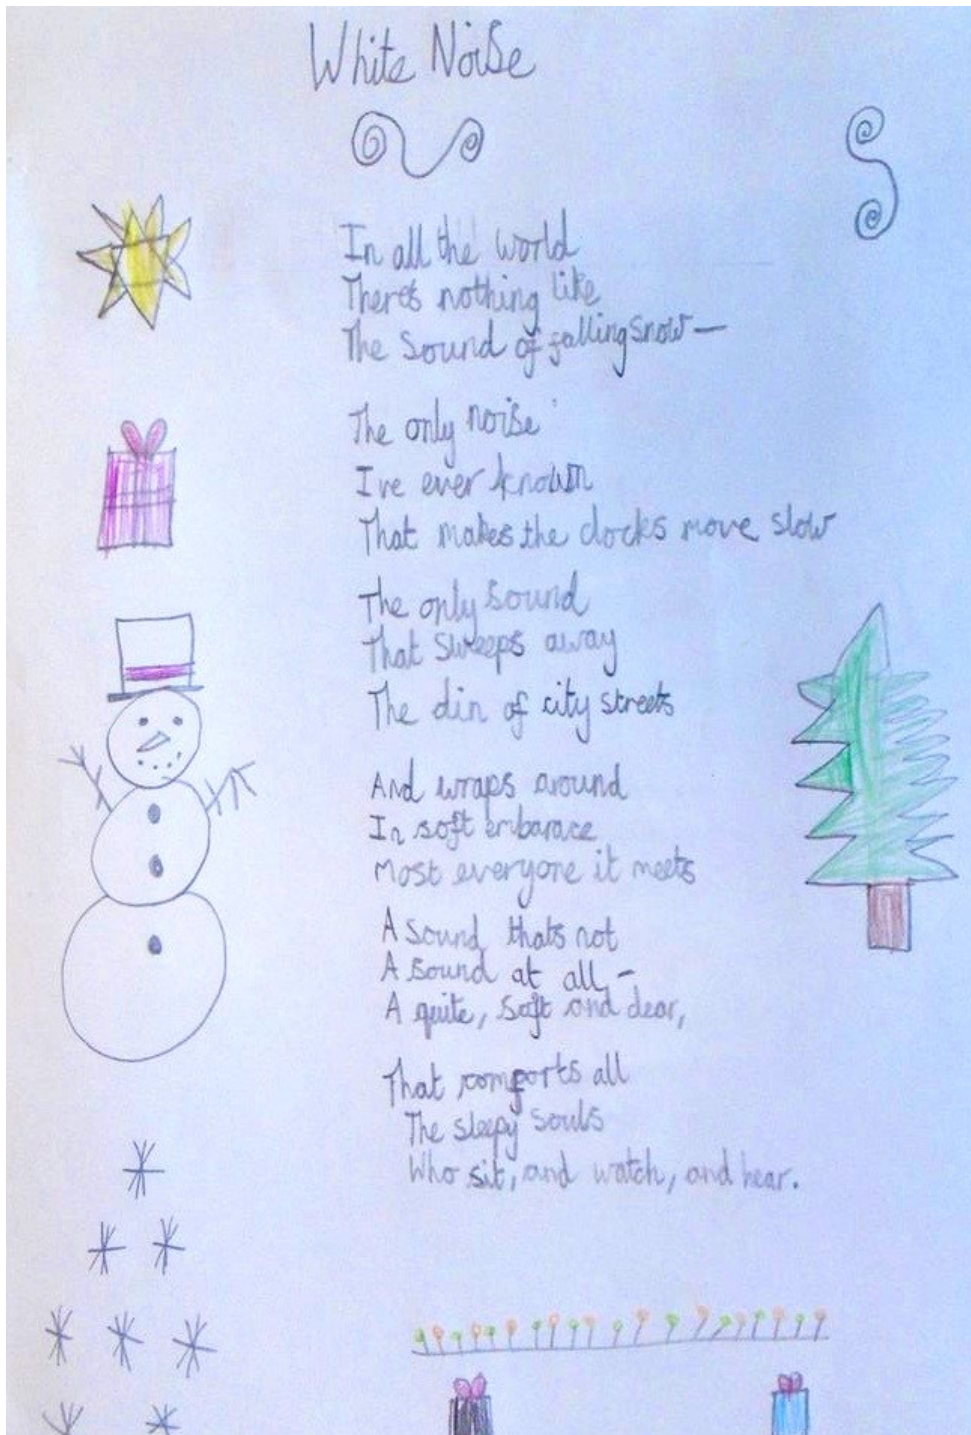 White Noise
In all the world
There's nothing like
The Sound of falling snow —
The only noise
I've ever known
That makes the clocks move slow
The only sound
That sweeps away
The din of city streets
And wraps around
In soft embarace
Most everyone it meets
A sound thats not
A sound at all, –
A quite, soft and dear,
That comforts all
The sleepy souls
Who sit, and watch, and hear.